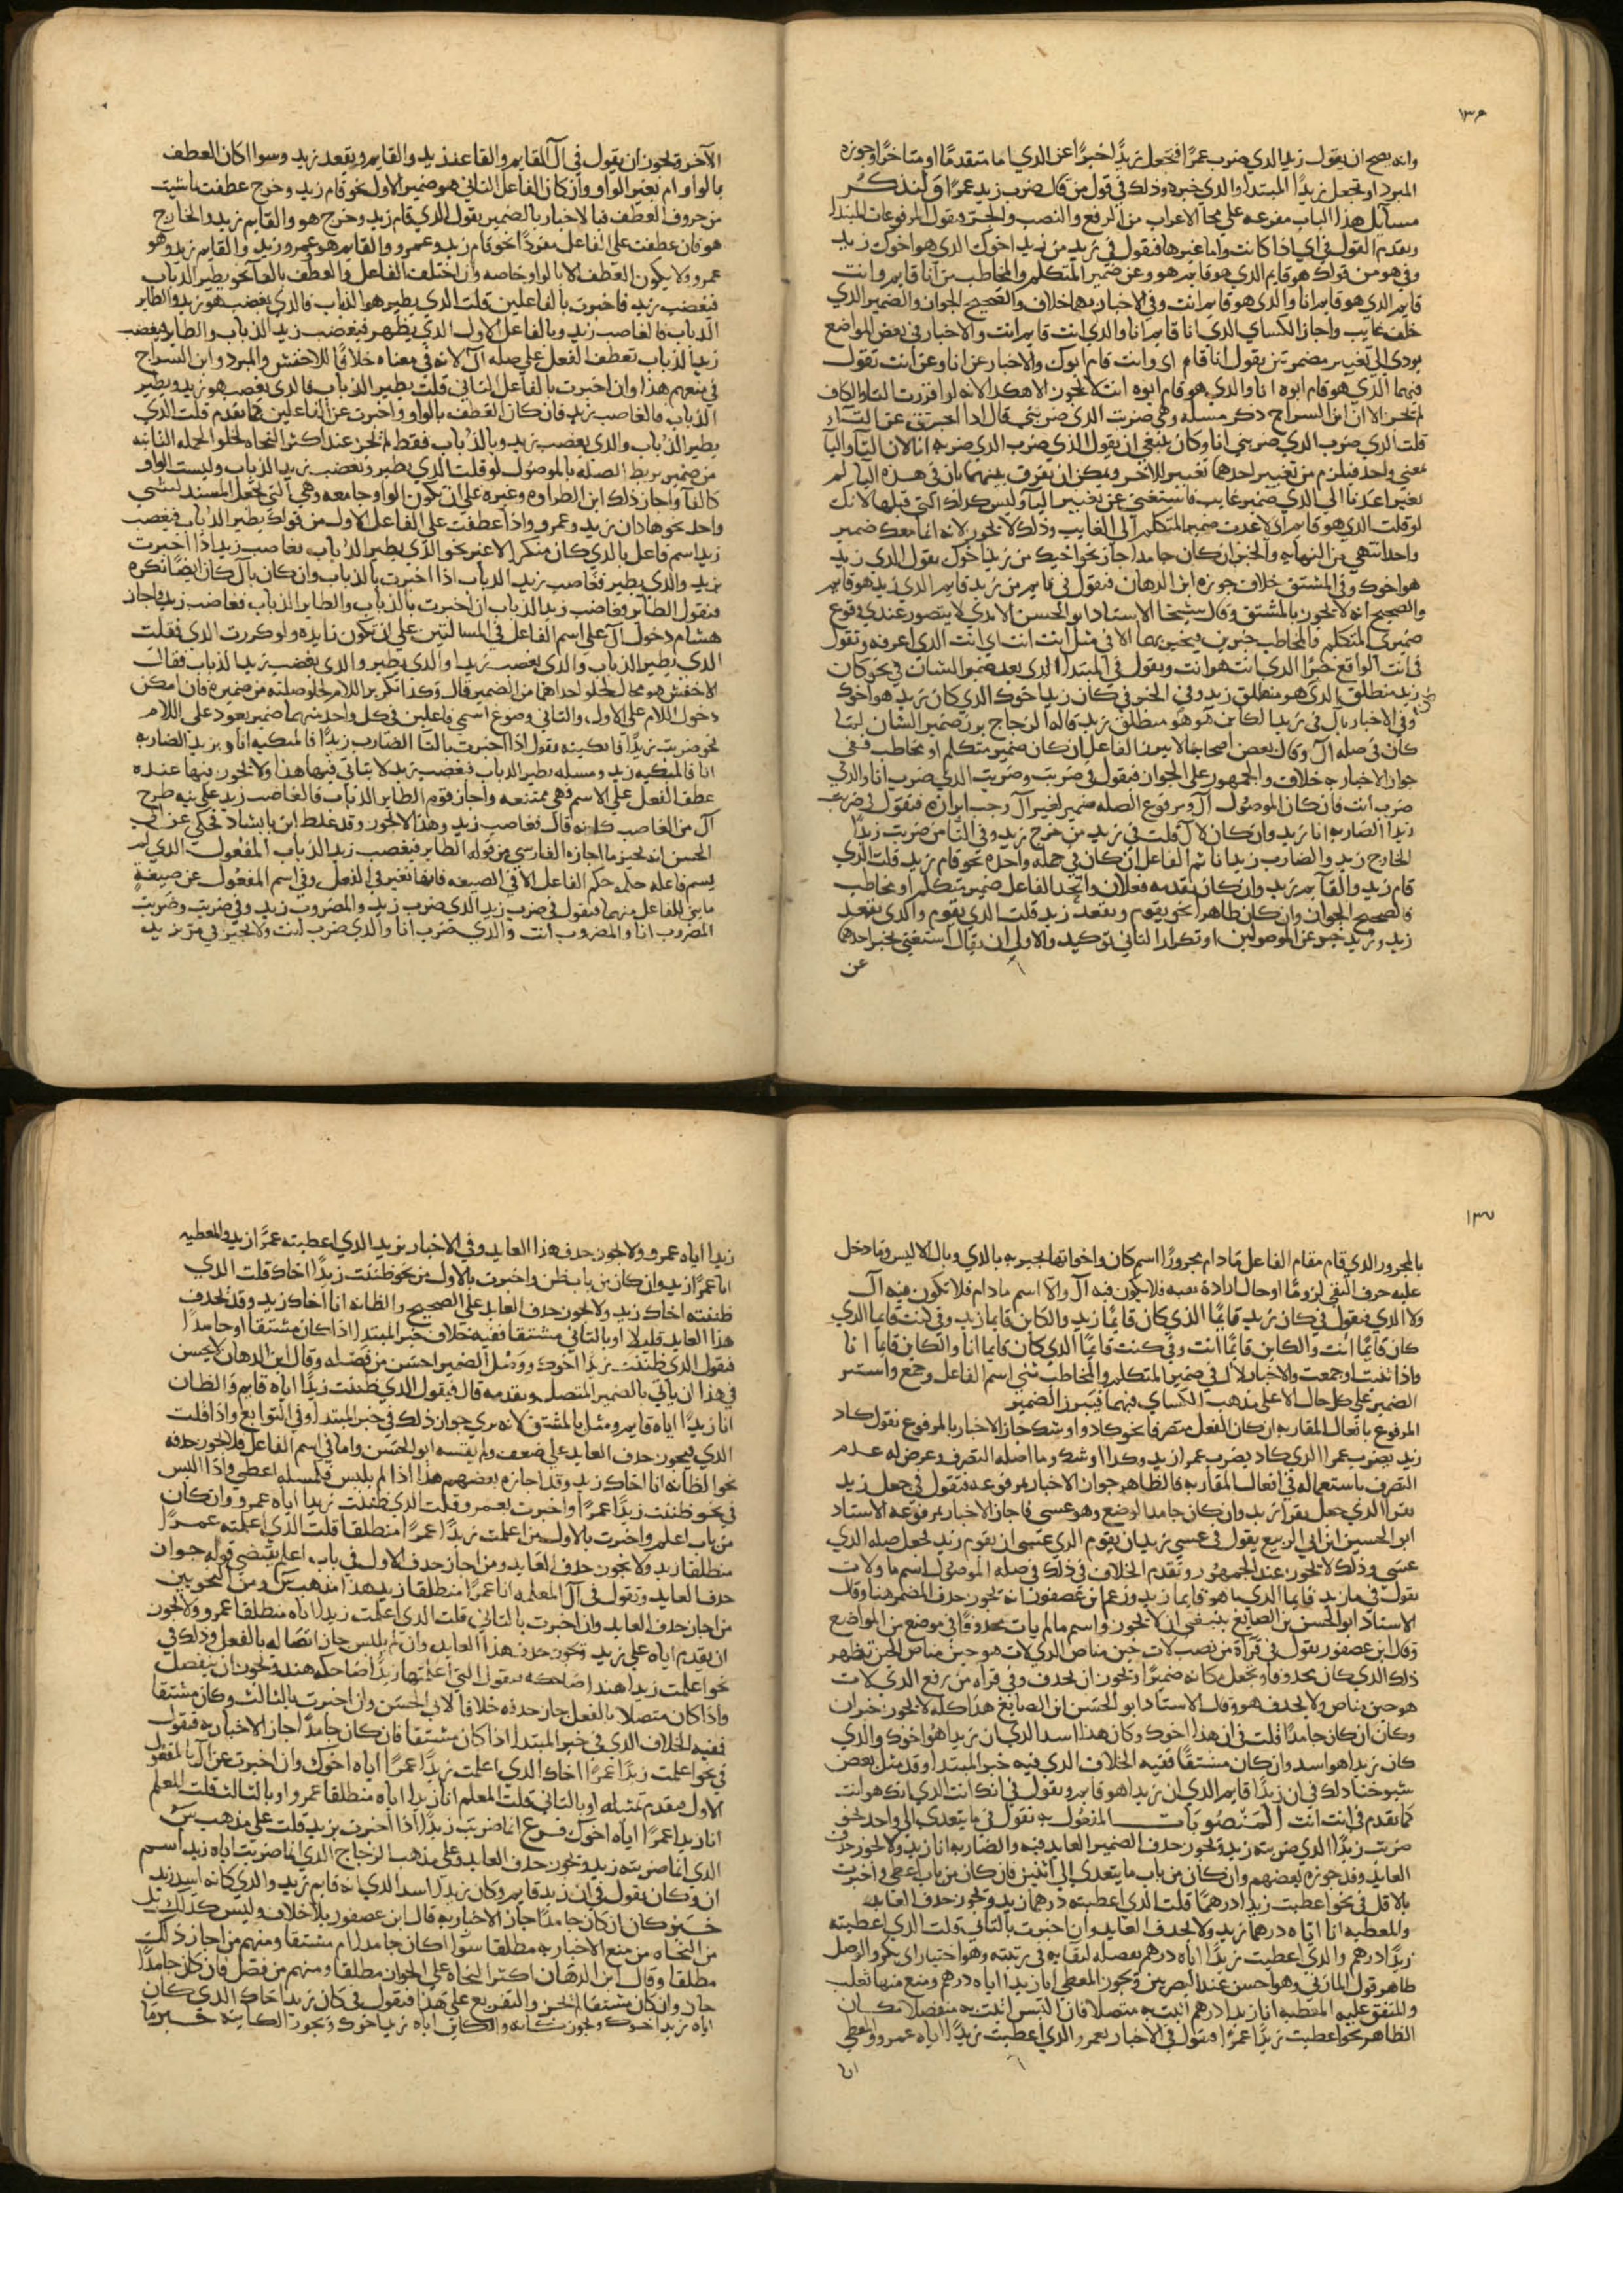 ١٣٦
وانه يصح ان يقول زيد الذي ضرب عمرًا فتجعل زيدًا خبرًا عن الذي اما متقدمًا او متاخرًا وجوزه
المبرد او تجعل زيدًا المبتدا والذي خبره وذلك في قول من قال ضرب زيد عمرًا ولنذكر
مسايل هذا الباب مفرعه على مجاري الاعراب من الرفع والنصب والجر فنقول المرفوعات المبتدا
وتقدم القول في اي اذا كانت واما غيرها فنقول في زيد من زيد اخوك الذي هو اخوك زيد
وفي هو من قولك هو قايم الذي هو قايم هو وعن ضمير المتكلم والمخاطب من انا قايم وانت
قايم الذي هو قايم انا والذي هو قايم انت وفي الاخبار بهما خلاف والصحيح الجواز والضمير الذي
خلف غايب واجاز الكساي الذي انا قايم انا والذي انت قايم انت والاخبار في بعض المواضع
يودي الى تغيير مضمرتين يقول انا قام اي وانت قام ابوك والاخبار عن انا وعن انت تقول
فيهما الذي هو قام ابوه انا والذي هو قام ابوه انت لا يجوز الا هكذا لانه لو افردت التا والكاف
لم تجز الا ان ابن السراج ذكر مسله وهي ضربت الذي ضربني فقال اذا اخبرت عن التاء
قلت الذي ضرب الذي ضربني انا وكان ينبغي ان يقول الذي ضرب الذي ضربه انا لان التا واليا
لمعنى واحد فيلزم من تغيير احدهما تغيير الاخر ويمكن ان يفرق بينهما بان في هذه اليا لم
لو قلت الذي هو قايم اي لاعدت ضمير المتكلم الى الغايب وذلك لا يجوز لانه انما معك ضمير
هو اخوك وفي المشتق خلاف جوزه ابن الدهان فنقول في قايم من زيد قايم الذي زيد هو قايم
والصحيح انه لا يجوز بالمشتق وقال شيخنا الاستاذ ابو الحسن الابدي لا يتصور عندي وقوع
ضميري المتكلم والمخاطب خبرين فيخبر بهما الا في مثل انت انت اي انت الذي اعرفه وتقول
في انت الواقع خبرًا الذي انت هو انت ويقول في المبتدا الذي بعد ضمير الشان في نحو كان
زيد منطلق الذي هو منطلق زيد وفي الخبر في كان زيد اخوك الذي كان زيد هو اخوك
وفي الاخبار بال في زيد الكاين هو هو منطلق زيد قاله الزجاج برز ضمير الشان لما
كان في صله ال وقال بعض اصحابنا لا يبرز الفاعل ان كان ضمير متكلم او مخاطب ففي
جواز الاخبار به خلاف والجمهور على الجواز فنقول في ضربت وضربت الذي ضرب انا والذي
ضرب انت فان كان الموصول ال ومرفوع الصله ضمير لغير ال وجب ابرازه فتقول في ضربت
زيدا الضاربه انا زيد وان كان لال قلت في زيد من خرج زيد وفي التا من ضربت زيدًا
الخارج زيد والضارب زيدا انا ثم الفاعل ان كان في جمله واحده نحو قام زيد قلت الذي
قام زيد والقايم زيد وان كان تقدمه فعلان واتحد الفاعل ضمير متكلم او مخاطب
فالصحيح الجواز وان كان ظاهرا نحو يقوم ويقعد زيد قلت الذي يقوم والذي يقعد
زيد وزيد خبر عن الموصولين او تكرار الثاني توكيد والاولى ان يقال استغنى بخبر احدهما
عن
الآخر ويجوز ان يقول في ال القايم والقاعد زيد والقايم ويقعد زيد وسوا اكان العطف
بالواو ام بغير الواو وان كان الفاعل الثاني هو ضمير الاول نحو قام زيد وخرج عطفت باشيت
من حروف العطف فبالاخبار بالضمير يقول الذي قام زيد وخرج هو والقايم زيد والخارج
هو فان عطفت على الفاعل مفردًا نحو قام زيد وعمرو والقايم هو عمرو وزيد والقايم زيد وهو
عمرو ولا يكون العطف الا بالواو خاصه وان اختلف الفاعل والعطف بالفا نحو يطير الذباب
فيغضب زيد فاخبرت بالفاعلين قلت الذي يطير هو الذباب فالذي يغضب هو زيد والطاير
الذباب فالغاصب زيد وبالفاعل الاول الذي يظهر فيغضب زيد الذباب والطاير فيغضب
زيد الذباب تعطف الفعل على صله ال لانه في معناه خلافًا للاخفش والمبرد وابن السراج
في منعهم هذا وان اخبرت بالفاعل الثاني قلت يطير الذباب فالذي يغضب هو زيد ويطير
الذباب فالغاصب زيد فان كان العطف بالواو واخبرت عن الفاعلين كما تقدم قلت الذي
يطير الذباب والذي يغضب زيد وبالذباب فقط لم يجز عند اكثر النحاه لخلو الجمله الثانيه
من ضمير يربط الصله بالموصول لو قلت الذي يطير ويغضب زيد الذباب وليست الواو
كالفا واجاز ذلك ابن الطراوه وغيره على ان تكون الواو جامعه وهي التي تجعل المسند لشيي
واحد نحو هاذان زيد وعمرو واذا عطفت على الفاعل الاول من قولك يطير الذباب فيغضب
زيد اسم فاعل بالذي كان منكرا لا غير نحو الذي يطير الذباب فغاصب زيد اذا اخبرت
بزيد والذي يطير فغاصب زيد الذباب اذا اخبرت بالذباب وان كان بال كان ايضًا نكره
فتقول الطاير فغاصب زيد الذباب ان اخبرت بالذباب والطاير الذباب فغاصب زيد واجاز
هشام دخول ال على اسم الفاعل في المسالتين على ان تكون زايده ولو كررت الذي فقلت
الذي يطير الذباب والذي يغضب زيد او الذي يطير والذي يغضب زيد الذباب فقال
الاخفش هو محال لخلو احداهما من الضمير قال وكذا تكرير اللام لخلو صلته من ضميره فان امكن
دخول اللام على الاول والثاني وصوغ اسمي فاعلين في كل واحد منهما ضمير يعود على اللام
نحو ضربت زيدًا فابكيته تقول اذا اخبرت بالتا الضارب زيدًا فالمبكيه انا وبزيد الضاربه
انا فالمبكيه زيد ومسله يطير الذباب فيغضب زيد لا يتاتى فيها هذا ولا يجوز فيها عنده
عطف الفعل على الاسم فهي ممتنعه واجاز قوم الطاير الذباب فالغاضب زيد على نيه طرح
ال من الغاصب كانه قال فغاصب زيد وهذا لا يجوز وقد غلط ابن بابشاذ فحكى عن ابي
الحسن انه يجيز ما اجازه الفارسي من قوله الطاير فيغضب زيد الذباب المفعول الذي لم
يسم فاعله حكمه حكم الفاعل الا في الصيغه فانها تغير في الفعل وفي اسم المفعول عن صيغة
ما بني للفاعل منهما فتقول في ضرب زيد الذي ضرب زيد والمضروب زيد وفي ضربت وضربت
المضروب انا والمضروب انت والذي ضرب انا والذي ضرب انت ولا يجيز في مر بزيد
١٣٧
بالمجرور الذي قام مقام الفاعل مادام مجرورًا اسم كان واخواتها يخبر به بالذي وبال الا ليس وما دخل
عليه حرف النفي لزومًا او حال ارادة نفيه فلا يكون فيه ال والا اسم مادام فلا تكون فيه ال
ولا الذي فنقول في كان زيد قايمًا الذي كان قايمًا زيد والكاين قايما زيد وفي كنت قايما الذي
كان قايمًا انت والكاين قايمًا انت وفي كنت قايمًا الذي كان قايما انا والكاين قايمًا انا
واذا ثنيت او جمعت والاخبار لال في ضمير المتكلم والمخاطب ثني اسم الفاعل وجمع واستتر
الضمير على كل حال الا على مذهب الكساي فيهما فيبرز الضمير
المرفوع بافعال المقاربه ان كان الفعل متصرفا نحو كاد واوشك جاز الاخبار بالمرفوع نقول كاد
زيد يضرب عمرا الذي كاد يضرب عمرا زيد وكذا اوشك وما اصله التصرف وعرض له عدم
التصرف باستعماله في افعال المقاربه فالظاهر جواز الاخبار بمرفوعه فتقول في جعل زيد
يقرا الذي جعل يقرا زيد وان كان جامدا لوضع وهو عسى فاجاز الاخبار بمرفوعه الاستاذ
ابو الحسين ابن ابي الربيع يقول في عسى زيد ان يقوم الذي عسى ان يقوم زيد لجعل صله الذي
عسى وذلك لا يجوز عند الجمهور وتقدم الخلاف في ذلك في صله الموصول اسم ما ولات
يقول في ما زيد قايما الذي ما هو قايما زيد وزعم ابن عصفور انه يجوز حذف المضمر هنا وقال
الاستاذ ابو الحسن بن الصايغ ينبغي ان لا يجوز واسم ما لم يات محذوفًا في موضع من المواضع
وقال ابن عصفور يقول في قراة من نصب لات حين مناص الذي لات هو حين مناص الحين تظهر
ذلك الذي كان محذوفا وتجعل مكانه ضميرًا ويجوز ان يحذف وفي قراه من رفع الذي لات
هو حين مناص ولا يحذف هو وقال الاستاذ ابو الحسن ابن الصايغ هذا كله لا يجوز خبر ان
وكان ان كان جامدًا قلت في ان هذا اخوك وكان هذا اسد الذي ان زيدا هو اخوك والذي
كان زيدا هو اسد وان كان مشتقًا ففيه الخلاف الذي في خبر المبتدا وقد مثل بعض
شيوخنا ذلك في ان زيدًا قايم الذي ان زيدا هو قايم ويقول في انك انت الذي انك هو انت
كما تقدم في انت انت المنصوبات المفعول به نقول في ما يتعدى الى واحد نحو
ضربت زيدًا الذي ضربته زيد ويجوز حذف الضمير العايد فيه والضاربه انا زيد ولا يجوز حذف
العايد وقد جوزه بعضهم وان كان من باب ما يتعدى الى اثنين فان كان من باب اعطى واخبرت
بالاول في نحو اعطيت زيدا درهمًا قلت الذي اعطيته درهما زيد ويجوز حذف العايد
والمعطيه انا اياه درهما زيد ولا يحذف العايد وان اخبرت بالثاني قلت الذي اعطيته
زيدًا درهم والذي اعطيت زيدًا اياه درهم بفصله ليقابه في رتبته وهو اختيار ابي بكر والوصل
ظاهر قول المازني وهو احسن عند البصريين ويجوز المعطي انا زيدا اياه درهم ومنع منها ثعلب
والمتفق عليه المعطيه انا زيدا درهم اتيت به متصلا فان التبس اتيت به منفصلا مكان
الظاهر نحو اعطيت زيدًا عمرًا فنقول في الاخبار بعمرو الذي اعطيت زيدًا اياه عمرو والمعطي
انا
زيدا اياه عمرو ولا يجوز حذف هذا العايد وفي الاخبار بزيد الذي اعطيته عمرًا زيد والمعطيه
انا عمرًا زيد وان كان من باب ظن واخبرت بالاول من نحو ظننت زيدًا اخاك قلت الذي
ظننته اخاك زيد ولا يجوز حذف العايد على الصحيح والظانه انا اخاك زيد وقد يحذف
هذا العايد قليلا او بالثاني مشتقا ففيه خلاف خبر المبتدا اذا كان مشتقا او جامدًا
فنقول الذي ظننت زيدًا اخوك ووصل الضمير احسن من فصله وقال ابن الدهان لا يحسن
في هذا ان ياتي بالضمير المتصل وتقدمه قال فيقول الذي ظننت زيدًا اياه قايم والظان
انا زيدًا اياه قايم ومثل بالمشتق لانه يرى جواز ذلك في خبر المبتدا وفي التوابع واذا قلت
الذي فيجوز حذف العايد على ضعف ولم يقسه ابو الحسن واما في اسم الفاعل فلا يجوز حذفه
نحو الظانه انا اخاك زيد وقد اجازه بعضهم هذا اذا لم يلبس فمسله اعطى واذا البس
في نحو ظننت زيدًا عمرًا واخبرت بعمرو قلت الذي ظننت زيدا اياه عمرو وان كان
من باب اعلم واخبرت بالاول من اعلمت زيدًا عمرًا منطلقا قلت الذي اعلمته عمرًا
منطلقا زيد ولا يجوز حذف العايد ومن اجاز حذف الاول في باب اعلم يقتضي قوله جواز
حذف العايد وتقول في ال المعلمه انا عمرًا منطلقا زيد هذا مذهب س ومن النحويين
من اجاز حذف العايد وان اخبرت بالثاني قلت الذي اعلمت زيدا اياه منطلقا عمرو ولا يجوز
ان يقدم اياه على زيد ويجوز حذف هذا العايد وان لم يلبس جاز اتصاله بالفعل وذلك في
نحو اعلمت زيدا هندا ضاحكه فيقول التي اعلمتها زيدًا ضاحكه هند ويجوز ان ينفصل
واذا كان متصلا بالفعل جاز حذفه خلافا لابي الحسن وان اخبرت بالثالث وكان مشتقا
ففيه الخلاف الذي في خبر المبتدا اذا كان مشتقا فان كان جامدًا جاز الاخبار به فيقول
في نحو اعلمت زيدًا عمرًا اخاك الذي اعلمت زيدًا عمرًا اياه اخوك وان اخبرت عن ال بالمفعول
الاول فيقدم تمثيله او بالثاني قلت المعلم انا زيدا اياه منطلقا عمرو او بالثالث قلت المعلم
انا زيدا عمرًا اياه اخوك فرع انما ضربت زيدًا اذا اخبرت بزيد قلت على مذهب س
الذي انما ضربته زيد ويجوز حذف العايد وعلى مذهب الزجاج الذي انما ضربت اياه زيد اسم
ان وكان يقول في ان زيد قايم وكان زيدًا اسد الذي انه قايم زيد والذي كانه اسد زيد
خبر كان ان كان جامدًا جاز الاخبار به قال ابن عصفور بلا خلاف وليس كذلك بل
من النحاه من منع الاخبار به مطلقا سوا اكان جامدا ام مشتقا ومنهم من اجاز ذلك
مطلقا وقال ابن الدهان اكثر النحاه على الجواز مطلقا ومنهم من فصل فان كان جامدًا
جاز وان كان مشتقا لم يجز والتفريع على هذا فنقول في كان زيد اخاك الذي كان
اياه زيد اخوك ويجوز كانه والكاين اياه زيد اخوك ويجوز الكاينه خبر ما